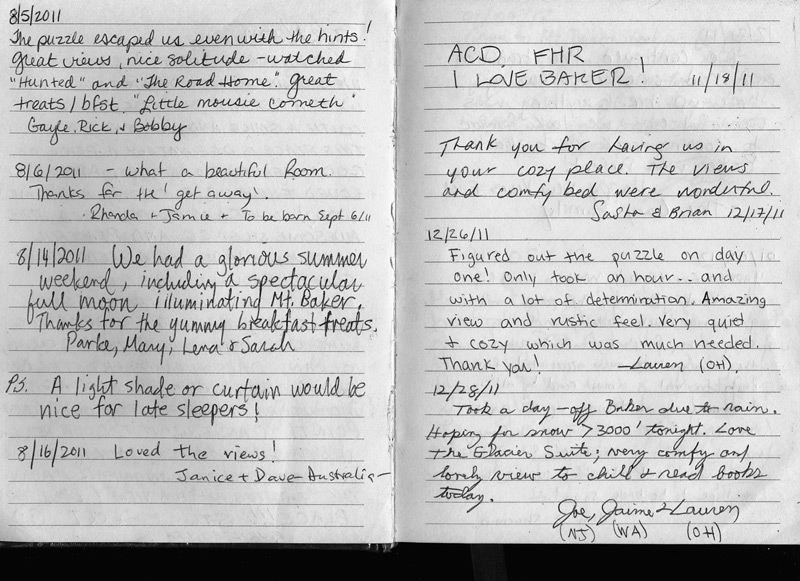 8/5/2011
The puzzle escaped us even with the hints!
Great views, nice solitude - watched
"Hunted" and "The Road Home". Great
treats / bfst. "Little mousie cometh"
Gayle, Rick, & Bobby
8/6/2011 - what a beautiful Room.
Thanks for the 'get away'.
- Rhonda + Jamie + To be born Sept 6/11
8/14/2011 We had a glorious summer
weekend, including a spectacular
full moon illuminating Mt. Baker.
Thanks for the yummy breakfast treats.
Parke, Mary, Lena & Sarah
P.S. A light shade or curtain would be
nice for late sleepers!
8/16/2011 Loved the views!
Janice + Dave - Australia -
ACD, FHR
I LOVE BAKER! 11/18/11
Thank you for having us in
your cozy place. The views
and comfy bed were wonderful.
Sasha & Brian 12/17/11
12/26/11
Figured out the puzzle on day
one! Only took an hour.. and
with a lot of determination. Amazing
view and rustic feel. Very quiet
+ cozy which was much needed.
Thank you! -Lauren (OH).
12/28/11
Took a day-off Baker due to rain.
Hoping for snow >3000' tonight. Love
the Glacier Suite; very comfy and
lovely view to chill & read books
today.
Joe, Jaime & Lauren
(NJ) (WA) (OH)